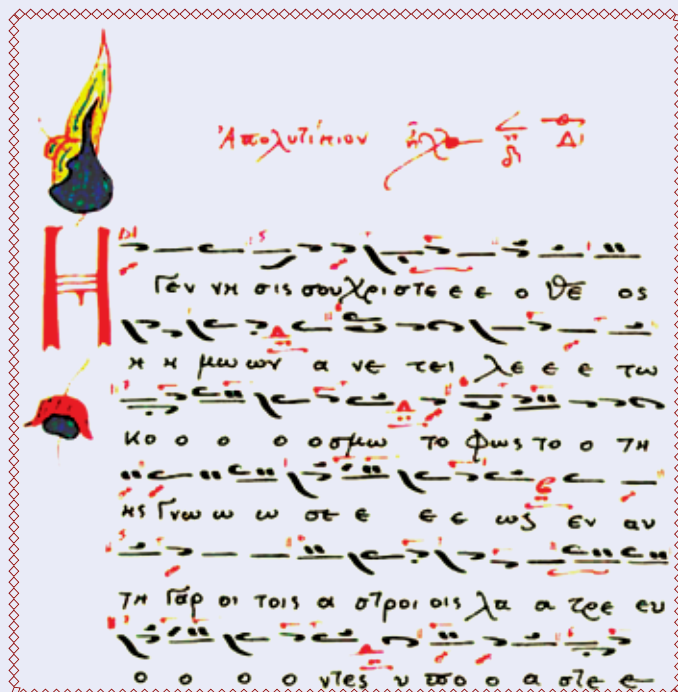 Ἀπολυτίκιον ἦχ Δι
Η Γέν νη σις σου Χριστε ε ε ο Θε ος
η η μω ων α νε τει λε ε ε τω
κο ο ο ο οσμω το φως το ο τη
ης Γνω ω ω σε ε ε ε ως εν αυ
τη Γαρ οι τοις α στροι οις λα α τρε ευ
ο ο ο ο ντες υ πο ο α στε ε